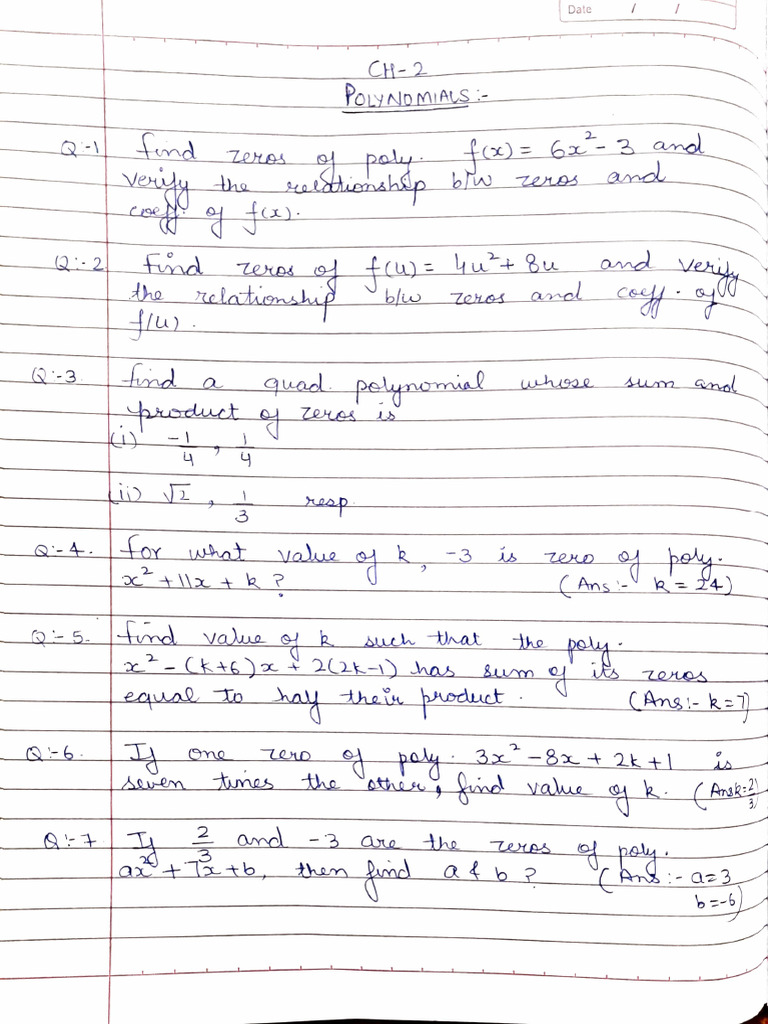 Date / /
CH-2
POLYNOMIALS:-
Q:-1 Find zeros of poly. f(x) = 6x² - 3 and
verify the relationship b/w zeros and
coeff. of f(x).
Q:-2 Find zeros of f(u) = 4u² + 8u and verify
the relationship b/w zeros and coeff. of
f(u).
Q:-3 Find a quad. polynomial whose sum and
product of zeros is
(i) -1/4, 1/4
(ii) √2, 1/3 resp.
Q:-4. For what value of k, -3 is zero of poly.
x² + 11x + k? (Ans:- k = 24)
Q:-5. Find value of k such that the poly.
x² - (k+6)x + 2(2k-1) has sum of its zeros
equal to half their product. (Ans:- k=7)
Q:-6. If one zero of poly. 3x² - 8x + 2k + 1 is
seven times the other, find value of k. (Ans k= 2/3)
Q:-7 If 2/3 and -3 are the zeros of poly.
ax² + 7x + b, then find a & b? (Ans:- a=3
b=-6)